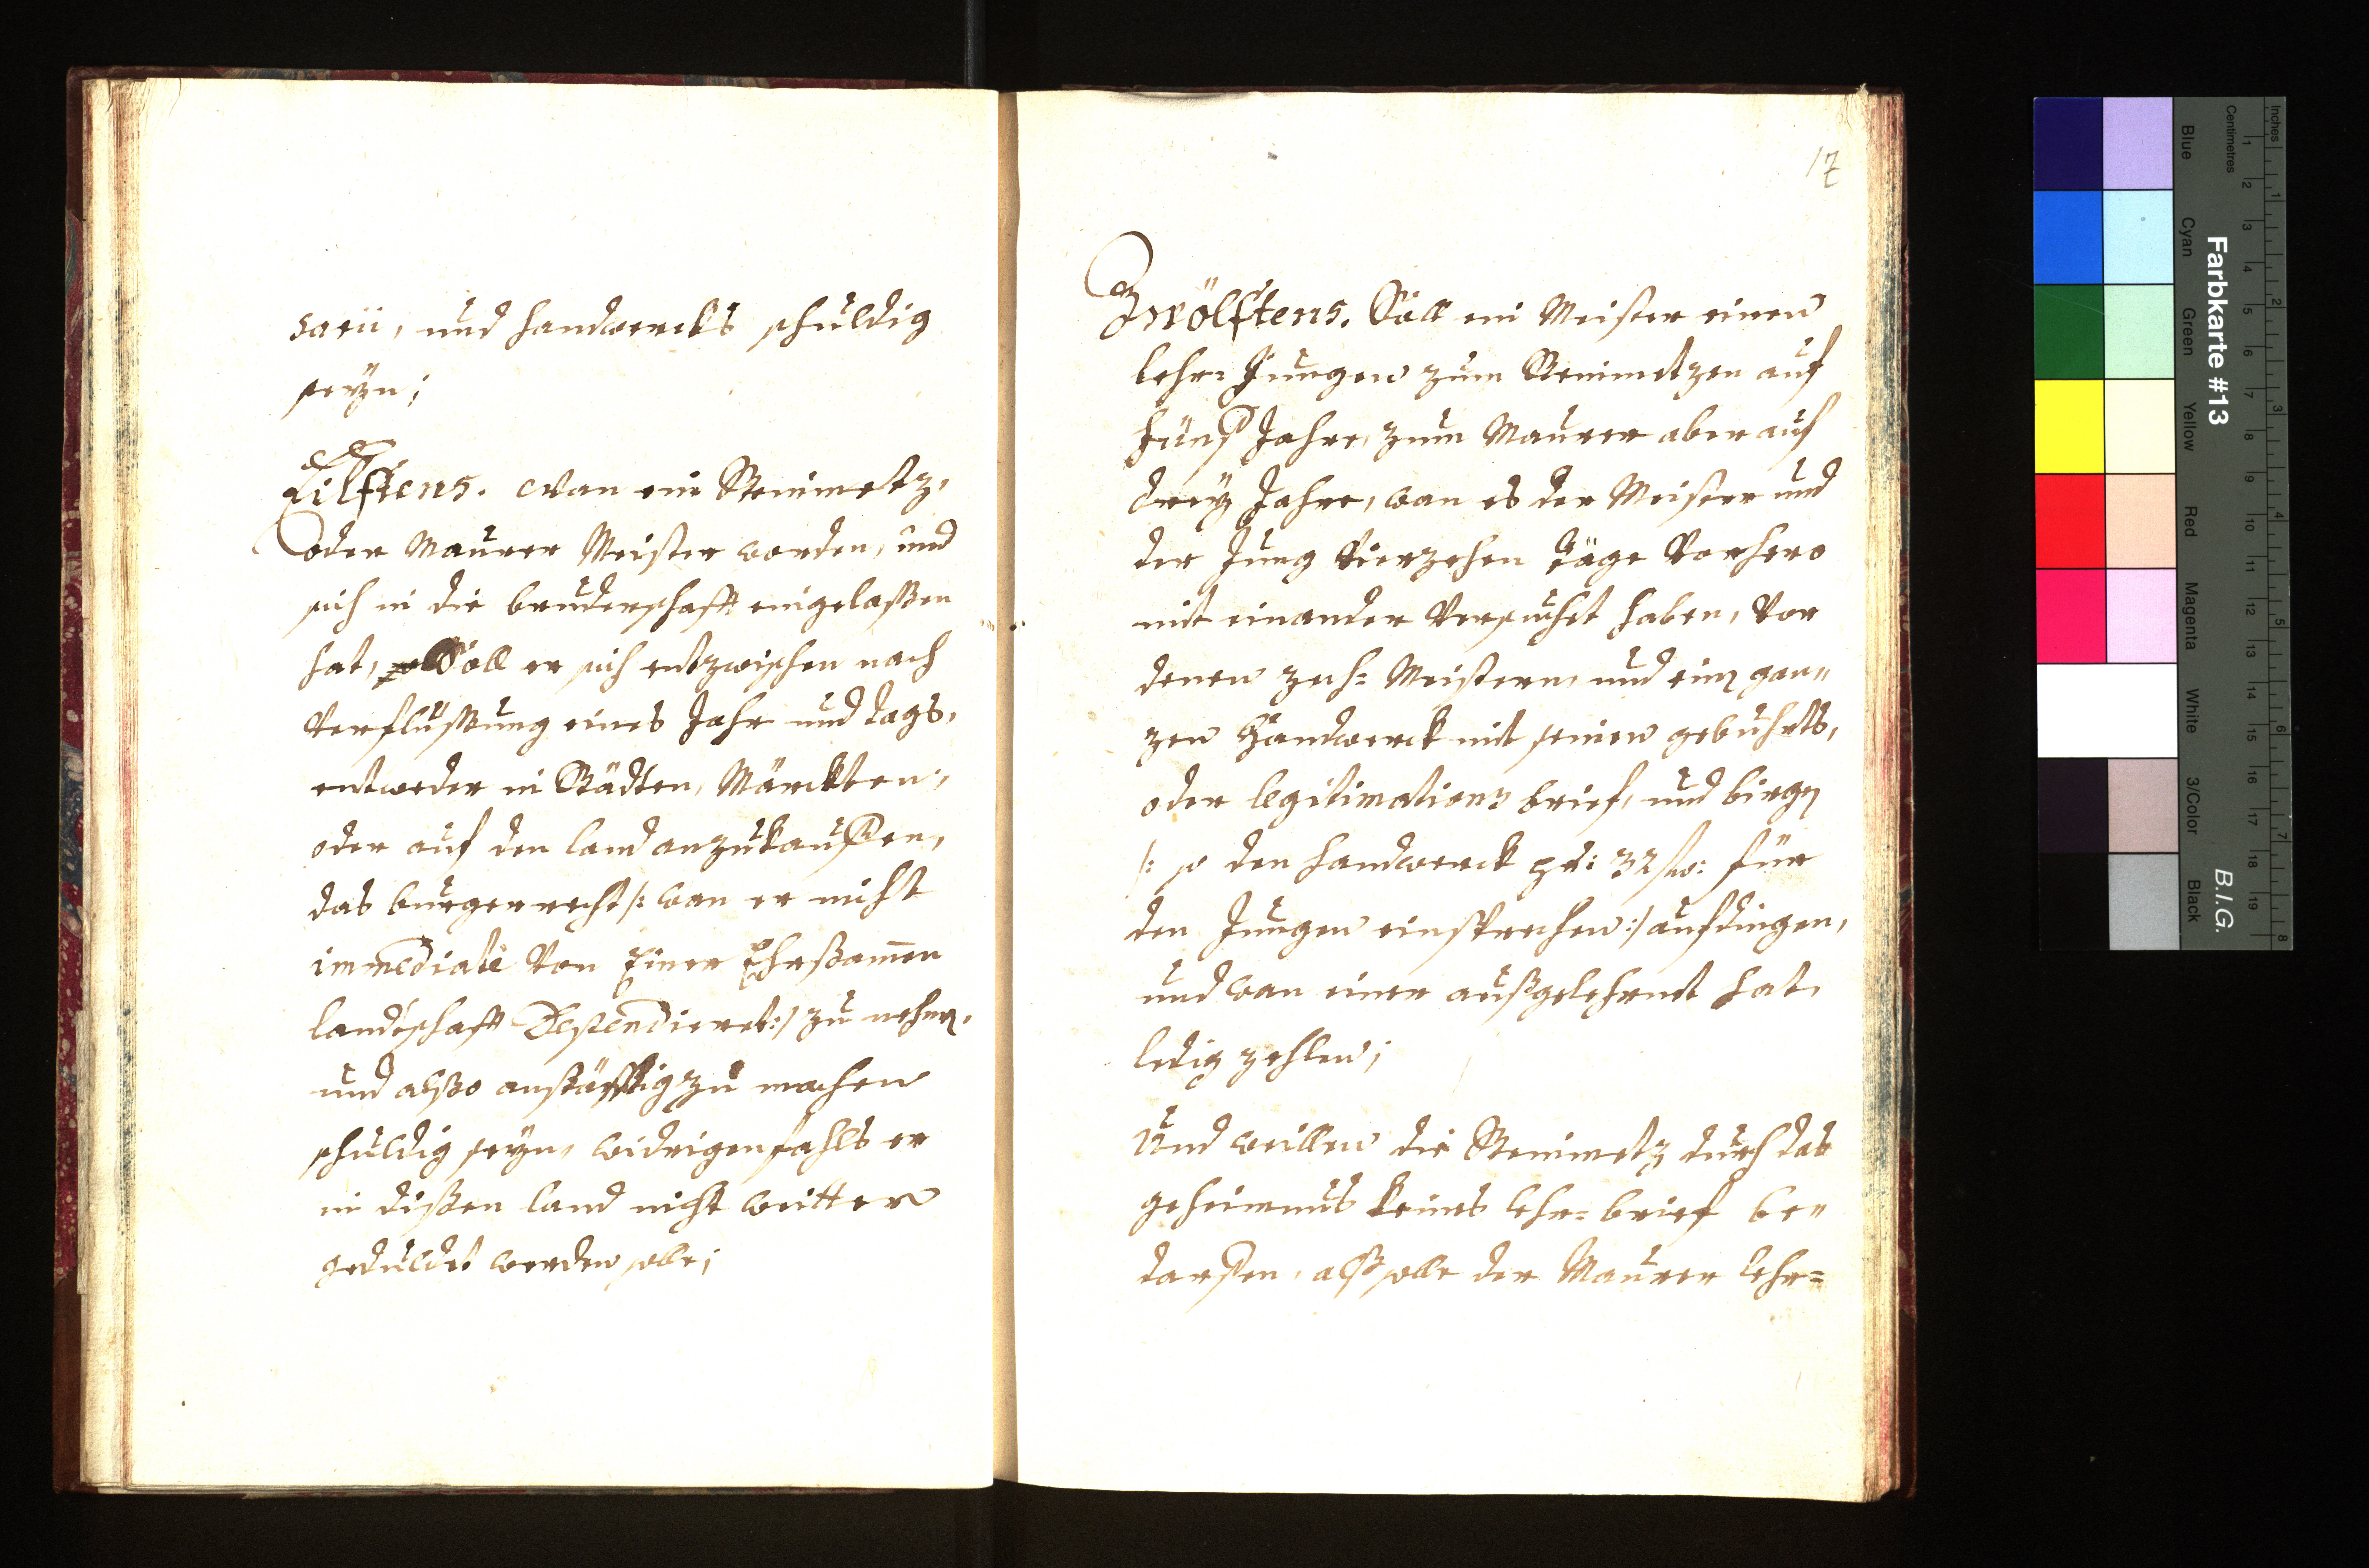 sarii, und handwercks schuldig
seÿn;
Eilftens. Wan ein Steinmetz,
oder Maurer Meister worden, und
sich in die bruderschafft eingelaßen
hat, Soll er sich entzwischen nach
Verflußung eines Jahr und tags,
entweder in Städten, Märckten,
oder auf den land anzukauffen,
das burgerrecht /: wan er nicht
immediatè Von Einer Ehrsamen
landschafft Dependieret :/ zu nehmen,
und alßo ansäßig zu machen
schuldig seÿn, widrigenfahls er
in dißen land nicht weitter
geduldet werden solle;
17
Zwölftens. Soll ein Meister einen
lehr= Jungen zum Steinmetzen auf
Fünf Jahr, zum Maurer aber auf
dreÿ Jahre, wan es der Meister und
der Jung Vierzehen täge Vorhero
mit einander Versuchet haben, Vor
denen zech= Meistern, und einem gan"
zen Handwerck mit seinen gebuhrts,
oder legitimations brief, und birgen
/: so den handwerck pr: 32 fl: für
den Jungen einsprechen :/ aufdingen,
und wan einer außgelehrnet hat,
ledig zehlen;
Und weillen die Steinmetz durch das
geheimnus keines lehr= brief be"
darffen, alß solle der Maurer lehr=
Farbkarte #13
B.I.G.
Inches
Centimetres
Blue
Cyan
Green
Yellow
Red
Magenta
White
3/Color
Black
1 2 3 4 5 6 7 8 9 10 11 12 13 14 15 16 17 18 19
1 2 3 4 5 6 7 8